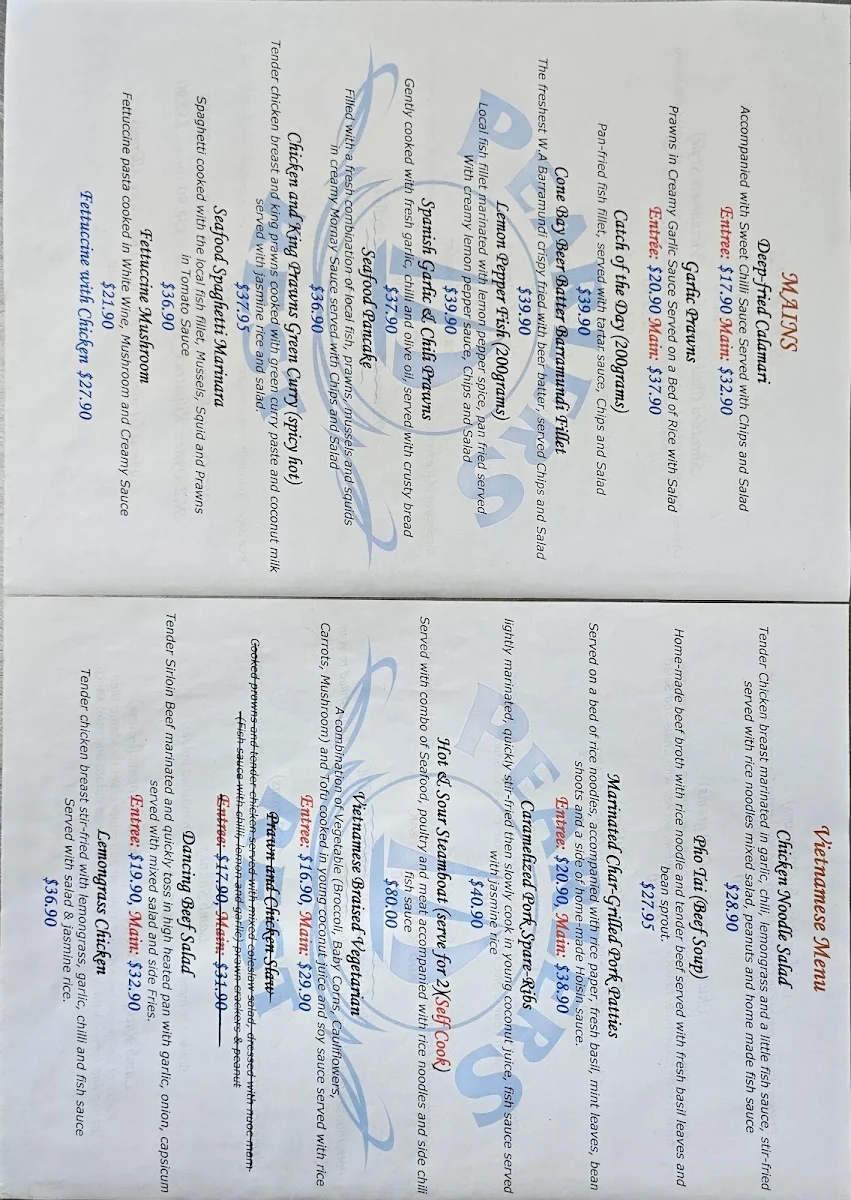 MAINS
Deep-fried Calamari
Accompanied with Sweet Chilli Sauce Served with Chips and Salad
Entree: $17.90 Main: $32.90
Garlic Prawns
Prawns in Creamy Garlic Sauce Served on a Bed of Rice with Salad
Entrée: $20.90 Main: $37.90
Catch of the Day (200grams)
Pan-fried fish fillet, served with tartar sauce, Chips and Salad
$39.90
Cone Bay Beer Batter Barramundi Fillet
The freshest W.A Barramundi crispy fried with beer batter, served Chips and Salad
$39.90
Lemon Pepper Fish (200grams)
Local fish fillet marinated with lemon pepper spice, pan fried served
With creamy lemon pepper sauce, Chips and Salad
$39.90
Spanish Garlic & Chili Prawns
Gently cooked with fresh garlic, chilli and olive oil, served with crusty bread
$37.90
Seafood Pancake
Filled with a fresh combination of local fish, prawns, mussels and squids
in creamy Mornay Sauce served with Chips and Salad
$36.90
Chicken and King Prawns Green Curry (spicy hot)
Tender chicken breast and king prawns cooked with green curry paste and coconut milk
served with jasmine rice and salad.
$37.95
Seafood Spaghetti Marinara
Spaghetti cooked with the local fish fillet, Mussels, Squid and Prawns
in Tomato Sauce
$36.90
Fettuccine Mushroom
Fettuccine pasta cooked in White Wine, Mushroom and Creamy Sauce
$21.90
Fettuccine with Chicken $27.90
PEARLERS
Vietnamese Menu
Chicken Noodle Salad
Tender Chicken breast marinated in garlic, chili, lemongrass and a little fish sauce, stir-fried
served with rice noodles mixed salad, peanuts and home made fish sauce
$28.90
Pho Tai (Beef Soup)
Home-made beef broth with rice noodle and tender beef served with fresh basil leaves and
bean sprout.
$27.95
Marinated Char-Grilled Pork Patties
Served on a bed of rice noodles, accompanied with rice paper, fresh basil, mint leaves, bean
shoots and a side of home-made Hoisin sauce.
Entree: $20.90, Main: $38.90
Caramelized Pork Spare-Ribs
lightly marinated, quickly stir-fried then slowly cook in young coconut juice, fish sauce served
with jasmine rice
$40.90
Hot & Sour Steamboat (serve for 2)(Self Cook)
Served with combo of Seafood, poultry and meat accompanied with rice noodles and side chili
fish sauce
$80.00
Vietnamese Braised Vegetarian
A combination of Vegetable (Broccoli, Baby Corns, Cauliflowers,
Carrots, Mushroom) and Tofu cooked in young coconut juice and soy sauce served with rice
Entree: $16.90, Main: $29.90
Prawn and Chicken Slaw
Cooked prawns and tender chicken served with mixed coleslaw salad, dressed with nuoc mam
(Fish sauce with chilli, lemon and garlic) prawn crackers & peanut
Entree: $17.90, Main: $31.90
Dancing Beef Salad
Tender Sirloin Beef marinated and quickly toss in high heated pan with garlic, onion, capsicum
served with mixed salad and side Fries.
Entree: $19.90, Main: $32.90
Lemongrass Chicken
Tender chicken breast stir-fried with lemongrass, garlic, chilli and fish sauce
Served with salad & jasmine rice.
$36.90
PEARLERS